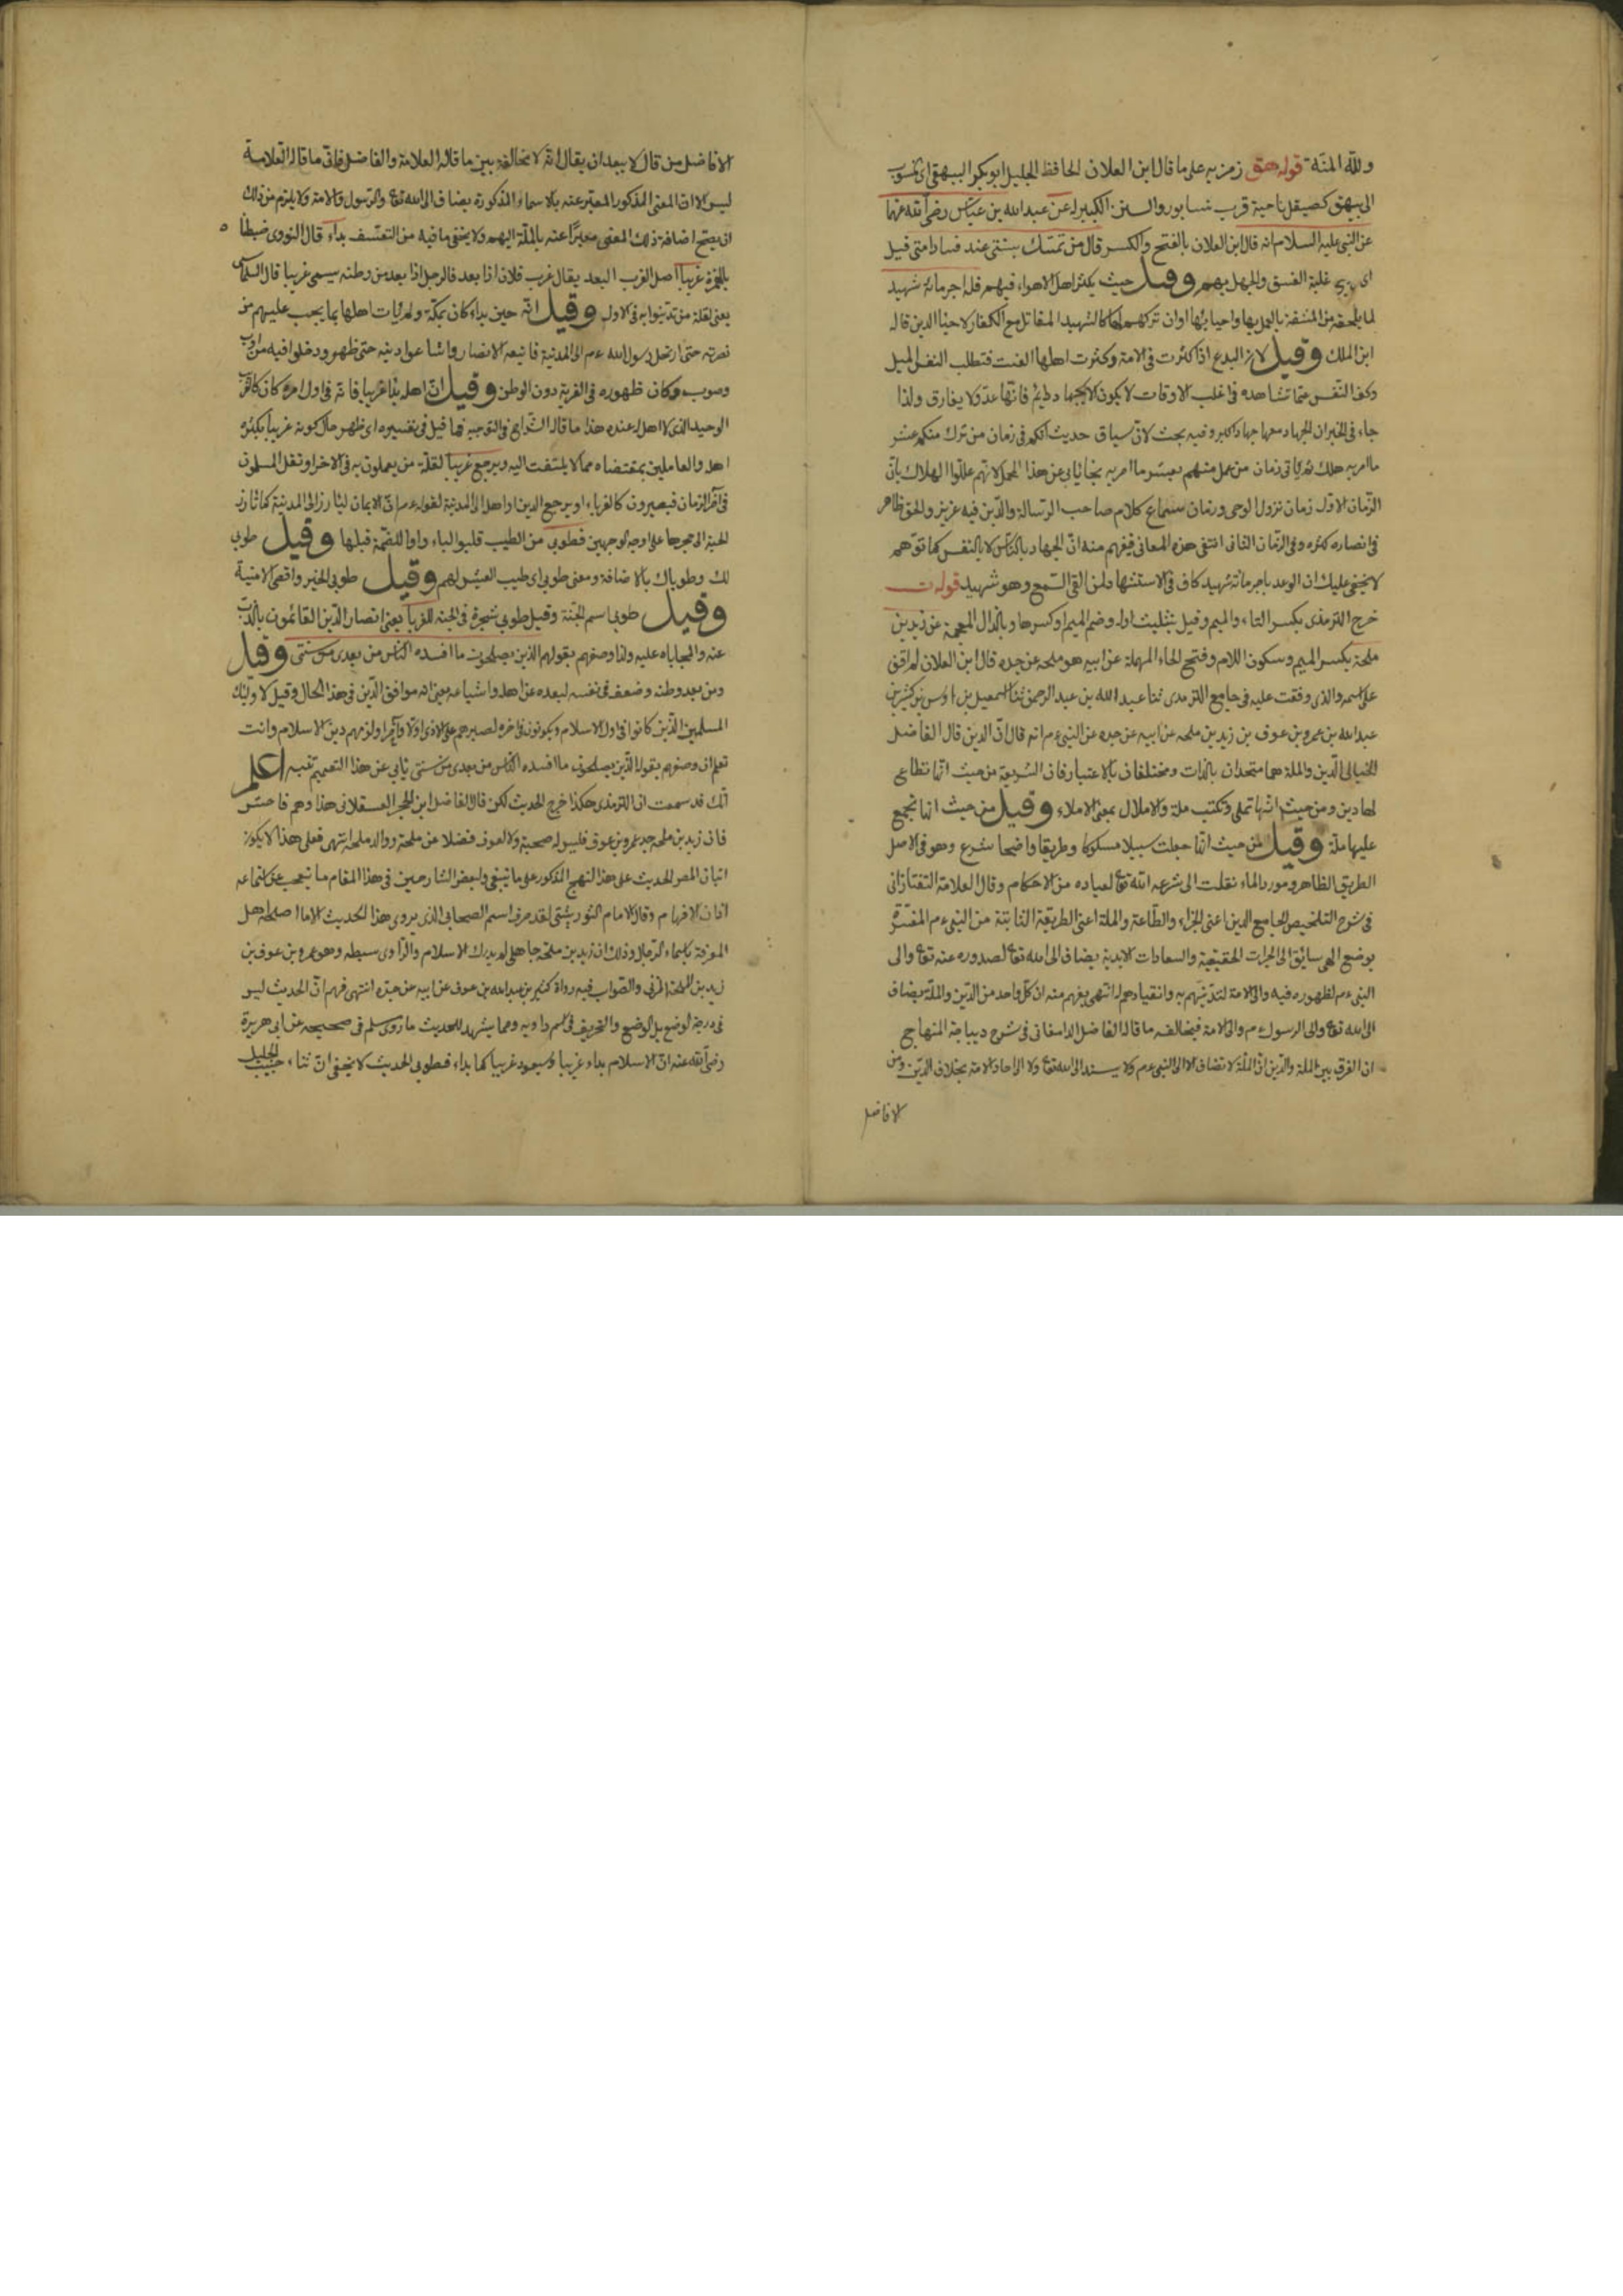 ولله المنة قوله هق رمز به على ما قال ابن العلان الحافظ الجليل ابو بكر البيهقى اى منسوب
الى بيهق كصيقل ناحية قرب نيسابور والسنن الكبير له عن عبد الله بن عباس رضى الله عنهما
عن النبى عليه السلام انه قال ابن العلان بالفتح والكسر قال من تمسك بسنتى عند فساد امتى قيل
اى غلبة الفسق والجهل بهم وقيل حيث يكثر اهل الاهواء فيهم فله اجر مائة شهيد
لما يلحقه من المشقة بالعمل بها واحيائها وان تركهم لها كالشهيد المقاتل مع الكفار لاحياء الدين قاله
ابن الملك وقيل لان البدع اذا كثرت فى الامة وكثرت اهلها الفت فتطلب النفس الميل
وكف النفس عما تشاهده فى اغلب الاوقات لا يكون الا بجهاد دائم فانها عدو لا يفارق ولذا
جاء فى الخبر ان الجهاد معها جهاد اكبر وفيه بحث لان سياق حديث انكم فى زمان من ترك منكم عشر
ما امر به هلك ثم ياتى زمان من عمل منهم بعشر ما امر به نجا يابى عن هذا المحمل لانهم عللوا الهلاك بان
الزمان الاول زمان نزول الوحى وزمان استماع كلام صاحب الرسالة والدين فيه عزيز والحق ظاهر
فى انصاره كثره وفى الزمان الثانى انتفى هذه المعانى فيفهم منه ان الجهاد بالناس لا بالنفس كما توهم
لا يخفى عليك ان الوعد باجر مائة شهيد كاف فى الاستشهاد لمن القى السمع وهو شهيد قوله ت
خرج الترمذى بكسر التاء والميم وقيل بتثليث اوله وضم الميم او كسرها وبالذال المعجمة عن زيد بن
ملحة بكسر الميم وسكون اللام وفتح الحاء المهملة عن ابيه هو ملحه عن جده قال ابن العلان لم اقف
على اسمه والذى وقفت عليه فى جامع الترمذى ثنا عبد الله بن عبد الرحمن ثنا اسمعيل بن اويس بن كثير بن
عبد الله بن عمرو بن عوف بن زيد بن ملحه عن ابيه عن جده عن النبى عم انه قال ان الدين قال الفاضل
الخيالى الدين والملة هما متحدان بالذات ومختلفان بالاعتبار فان الشريعة من حيث انها تطاع
لها دين ومن حيث انها تملى وتكتب ملة والاملال بمعنى الاملاء وقيل من حيث انها تجمع
عليها ملة وقيل من حيث انها جعلت سبيلا مسكوكا وطريقا واضحا شرع وهو فى الاصل
الطريق الظاهر ومورد الماء نقلت الى شرعه الله تع لعباده من الاحكام وقال العلامة التفتازانى
فى شرح التلخيص الجامع الدين اعنى الجزاء والطاعة والملة اعنى الطريقة الثابتة من النبى عم المفسرة
بوضع الهى سابق الى الخيرات الحقيقية والسعادات الابدية يضاف الى الله تع لصدوره عنه تع والى
النبى عم لظهوره فيه والى الامة لتدينهم به وانقيادهم له انتهى يفهم منه ان كل واحد من الدين والملة يضاف
الى الله تع والى الرسول عم والى الامة فيخالفه ما قاله الفاضل الدامغانى فى شرح ديباجة المنهاج
ان الفرق بين الملة والدين ان الملة لا تضاف الا الى النبى عم ولا يسند الى الله تع ولا الى احاد الامة بخلاف الدين ومن
الافاضل
الافاضل من قال لا يبعد ان يقال انه لا مخالفة بين ما قاله العلامة والفاضل فان ما قاله العلامة
ليس الا ان المعنى المذكور المعبر عنه بالاسماء المذكورة يضاف الى الله تع والرسول والامة ولا يلزم من ذلك
ان يصح اضافة ذلك المعنى معبرا عنه بالملة اليهم ولا يخفى ما فيه من التعسف بداء قال النووى ضبطنا
بالهمزة غريبا اصل الغرب البعد يقال غرب فلان اذا بعد فالرجل اذا بعد من وطنه سيمى غريبا قال
يعنى لقلة من تدينوا به فى الاول وقيل انه حين بداء كان بمكة ولم يات اهلها بما يجب عليهم من
نصرته حتى ارتحل رسول الله عم الى المدينة فاتبعه الانصار واشاعوا دينه حتى ظهر ودخلوا فيه من اوب
وصوب فكان ظهوره فى الغربة دون الوطن وقيل ان اهله بداء غريبا فانه فى اول امره كان كالغريب
الوحيد الذى لا اهل له عنده هذا ما قاله الشراح فى التوجيه فما قيل فى تفسيره اى ظهر حال كونه غريبا بكثرة
اهله والعاملين بمقتضاه مما لا يلتفت اليه ويرجع غريبا لقلة من يعملون به فى الاخر او نقل المسلمون
فى آخر الزمان فيصيرون كالغرباء او يرجع الدين او اهله الى المدينة لقوله عم ان الايمان ليارز الى المدينة كما تارز
الحية الى جحرها على اوجه الوجهين فطوبى من الطيب قلبوا الياء واوا للضمة قبلها وقيل طوبى
لك وطوباك بالاضافة ومعنى طوبى اى طيب العيش لهم وقيل طوبى الخير واقصى الامنية
وقيل طوبى اسم الجنة وقيل طوبى شجرة فى الجنة للغربا يعنى انصار الدين القائمون بالذب
عنه والمجاباه عليه ولذا وصفهم بقولهم الذين يصلحون ما افسده الناس من بعدى من سنتى وقيل
ومن بعد وطنه وضعف فى نفسه لبعده عن اهله واشياعه يعنى انه موافق الدين فى هذا الحال وقيل لاولئك
المسلمين الذين كانوا فى اول الاسلام ويكونون فى اخره لصبرهم على الاذى اولا وآخرا ولزمهم دين الاسلام وانت
تعلم ان وصفهم بقوله الذين يصلحون ما افسده الناس من بعدى من سنتى يابى عن هذا التعميم تنبيه اعلم
انك قد سمعت ان الترمذى هكذا خرج الحديث لكن قال الفاضل ابن الحجر العسقلانى هذا وهم فاحش
فان زيد بن ملحة جد عمرو بن عوف فليس له صحبة ولا لعوف فضلا عن ملحة ووالد ملحه انتهى فعلى هذا لا يكون
اتيان المص الحديث على هذا النهج المذكور على ما ينبغى ولبعض الشارحين فى هذا المقام ما يتعجب عن استماعه
اذان الافهام وقال الامام التوربشتى لقد حرف اسم الصحابى الذى يروى هذا الحديث الا ما اصلحه اهل
المعرفة باسماء الرجال وذلك ان زيد بن ملحة جاهلى لم يدرك الاسلام والراوى سبطه وهو عمرو بن عوف بن
زيد بن الملحة المزنى والصواب فيه رواة كثير بن عبد الله بن عوف عن ابيه عن جده انتهى فهم ان الحديث ليس
فى درجة الوضع بل الوضع والتحريف فى اسم راويه ومما يشهد للحديث ما روى مسلم فى صحيحه عن ابى هريرة
رضى الله عنه ان الاسلام بداء غريبا وسيعود غريبا كما بداء فطوبى الحديث لا يخفى ان ثناء حبيب الجليل